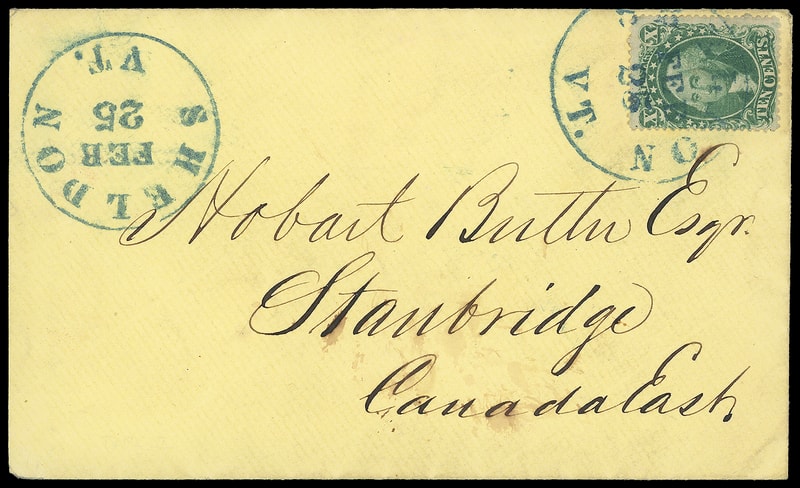 SHELDON
FEB
25
VT.
ON
FEB
25
VT.
X X
TEN CENTS
Hobart Butler Esqr.
Stanbridge
Canada East